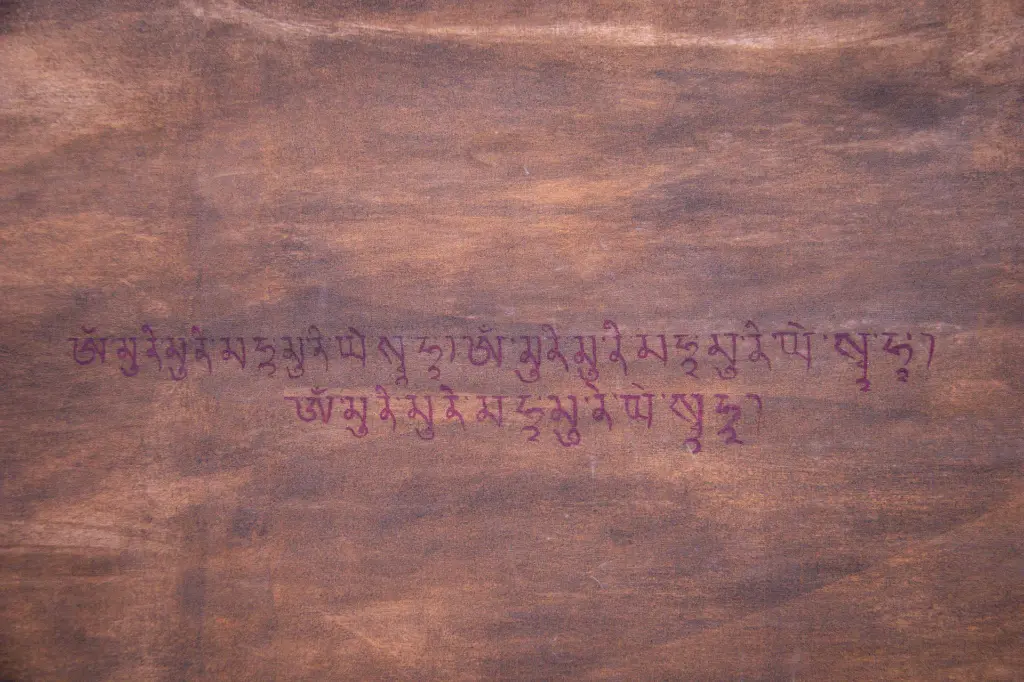 ཨོཾ་མུ་ནེ་མུ་ནེ་མ་ཧཱ་མུ་ནེ་ཡེ་སྭཱ་ཧཱ། ཨོཾ་མུ་ནེ་མུ་ནེ་མ་ཧཱ་མུ་ནེ་ཡེ་སྭཱ་ཧཱ།
ཨོཾ་མུ་ནེ་མུ་ནེ་མ་ཧཱ་མུ་ནེ་ཡེ་སྭཱ་ཧཱ།